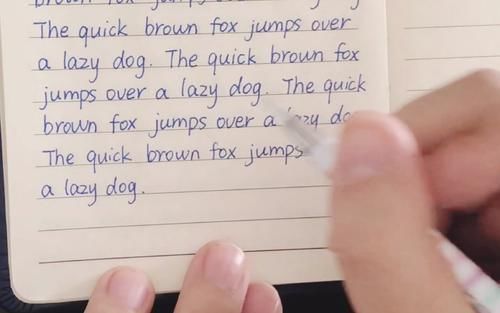 brown fox
The quick brown fox jumps over
a lazy dog. The quick brown fox
jumps over a lazy dog. The quick
brown fox jumps over a
The quick brown fox jumps
a lazy dog.